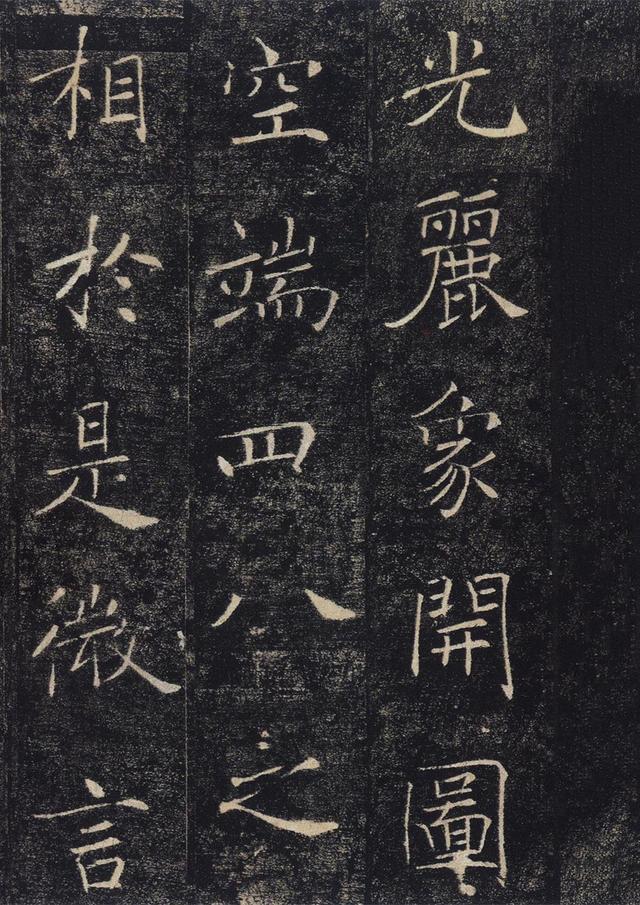 光麗象開圖
空端四八之
相於是微言